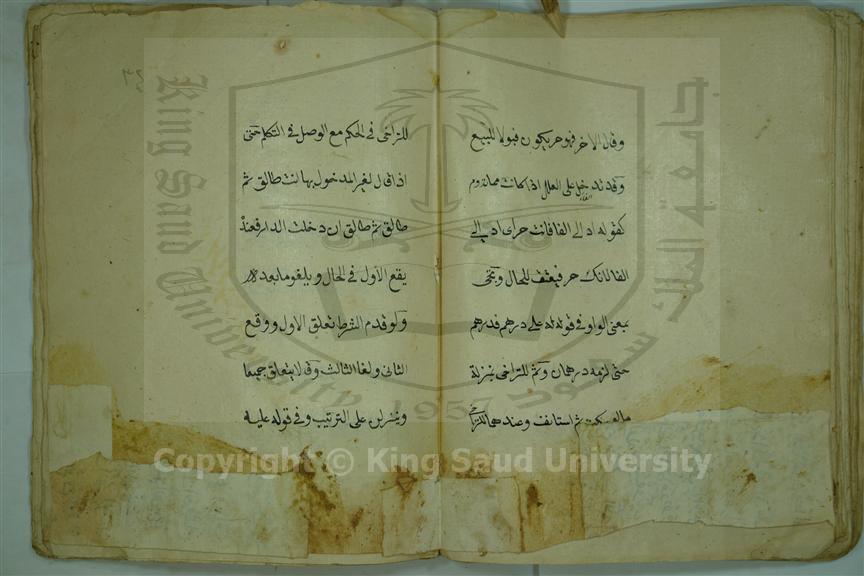 وقال الاخر فهو حر يكون قبولا للبيع
وقد تدخل على العلل اذا كانت مما تدوم
الفاء
كقوله اد الي الفا فانت حر اى اد الي
الفا لانك حر فيعتق للحال وتجئ
بمعنى الواو في قوله له على درهم فدرهم
حتى لزمه درهمان وثم للتراخى بمنزلة
مالو سكت ثم استانف وعندهما للتراخى
للتراخى في الحكم مع الوصل في التكلم حتى
اذا قال لغير المدخول بها انت طالق ثم
طالق ثم طالق ان دخلت الدار فعنده
يقع الاول في الحال ويلغو ما بعده
ولو قدم الشرط تعلق الاول ووقع
الثانى ولغا الثالث وقالا يتعلق جميعا
وينزلن على الترتيب وفي قوله عليه
٣٤
King Saud University
1957
Copyright © King Saud University